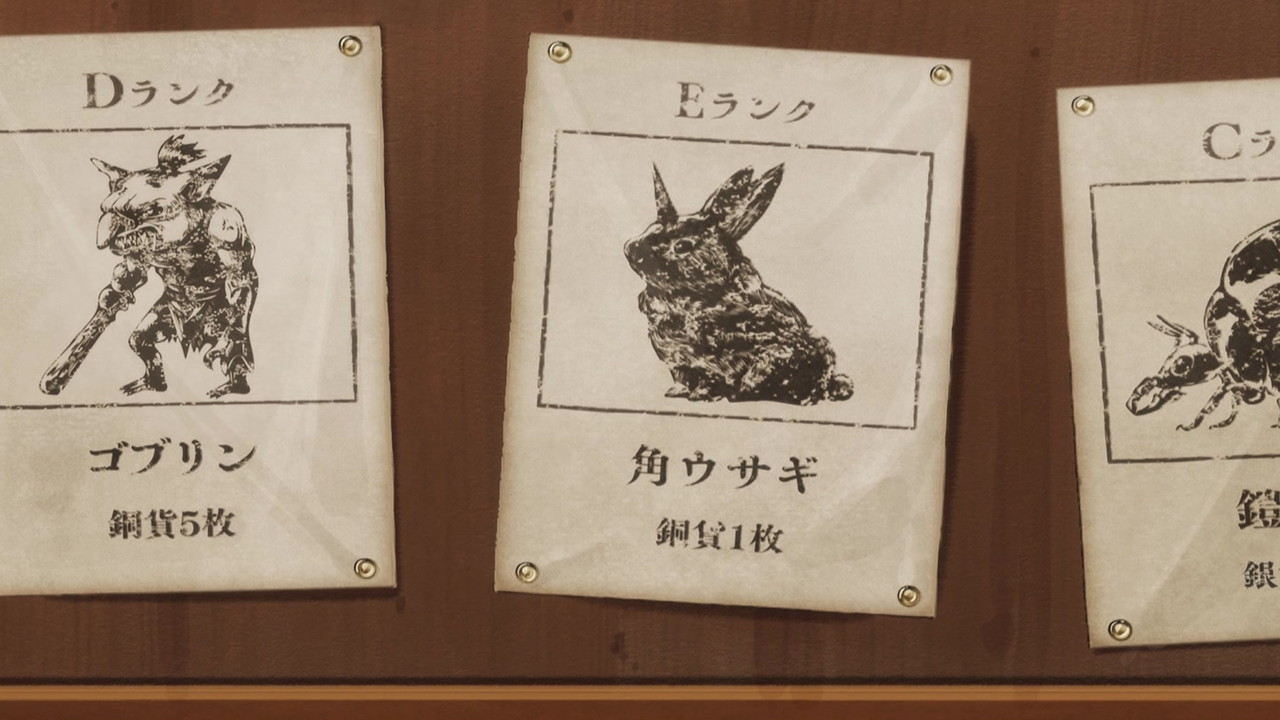 Dランク
ゴブリン
銅貨5枚
Eランク
角ウサギ
銅貨1枚
Cラ
鎧
銀